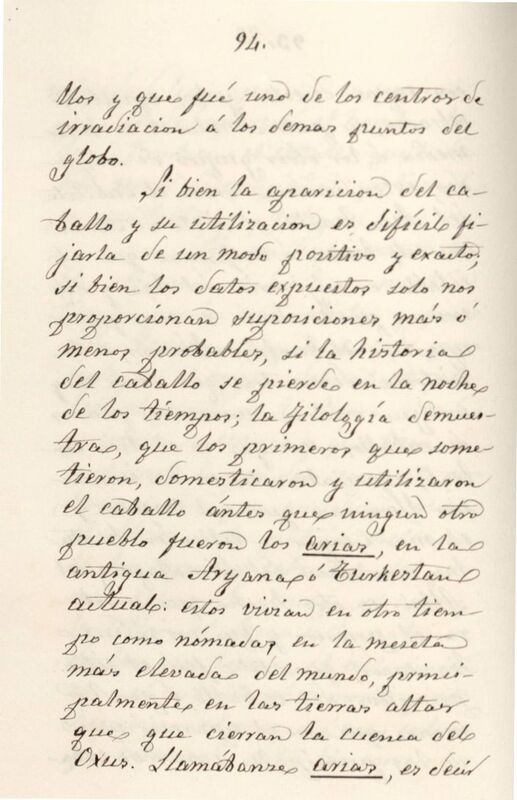 94.
llos y que fué uno de los centros de
irradiacion á los demas puntos del
globo.
Si bien la aparicion del ca-
ballo y su utilizacion es dificil fi-
jarla de un modo positivo y exacto;
si bien los datos expuestos solo nos
proporcionan suposiciones más ó
menos probables, si la historia
del caballo se pierde en la noche
de los tiempos; la filología demues-
tra, que los primeros que some-
tieron, domesticaron y utilizaron
el caballo ántes que ningun otro
pueblo fueron los arias, en la
antigua Aryana ó Turkestan
actual: estos vivian en otro tiem-
po como nómadas en la meseta
más elevada del mundo, princi-
palmente en las tierras altas
que que cierran la cuenca del
Oxus. Llamábanse arias, es decir